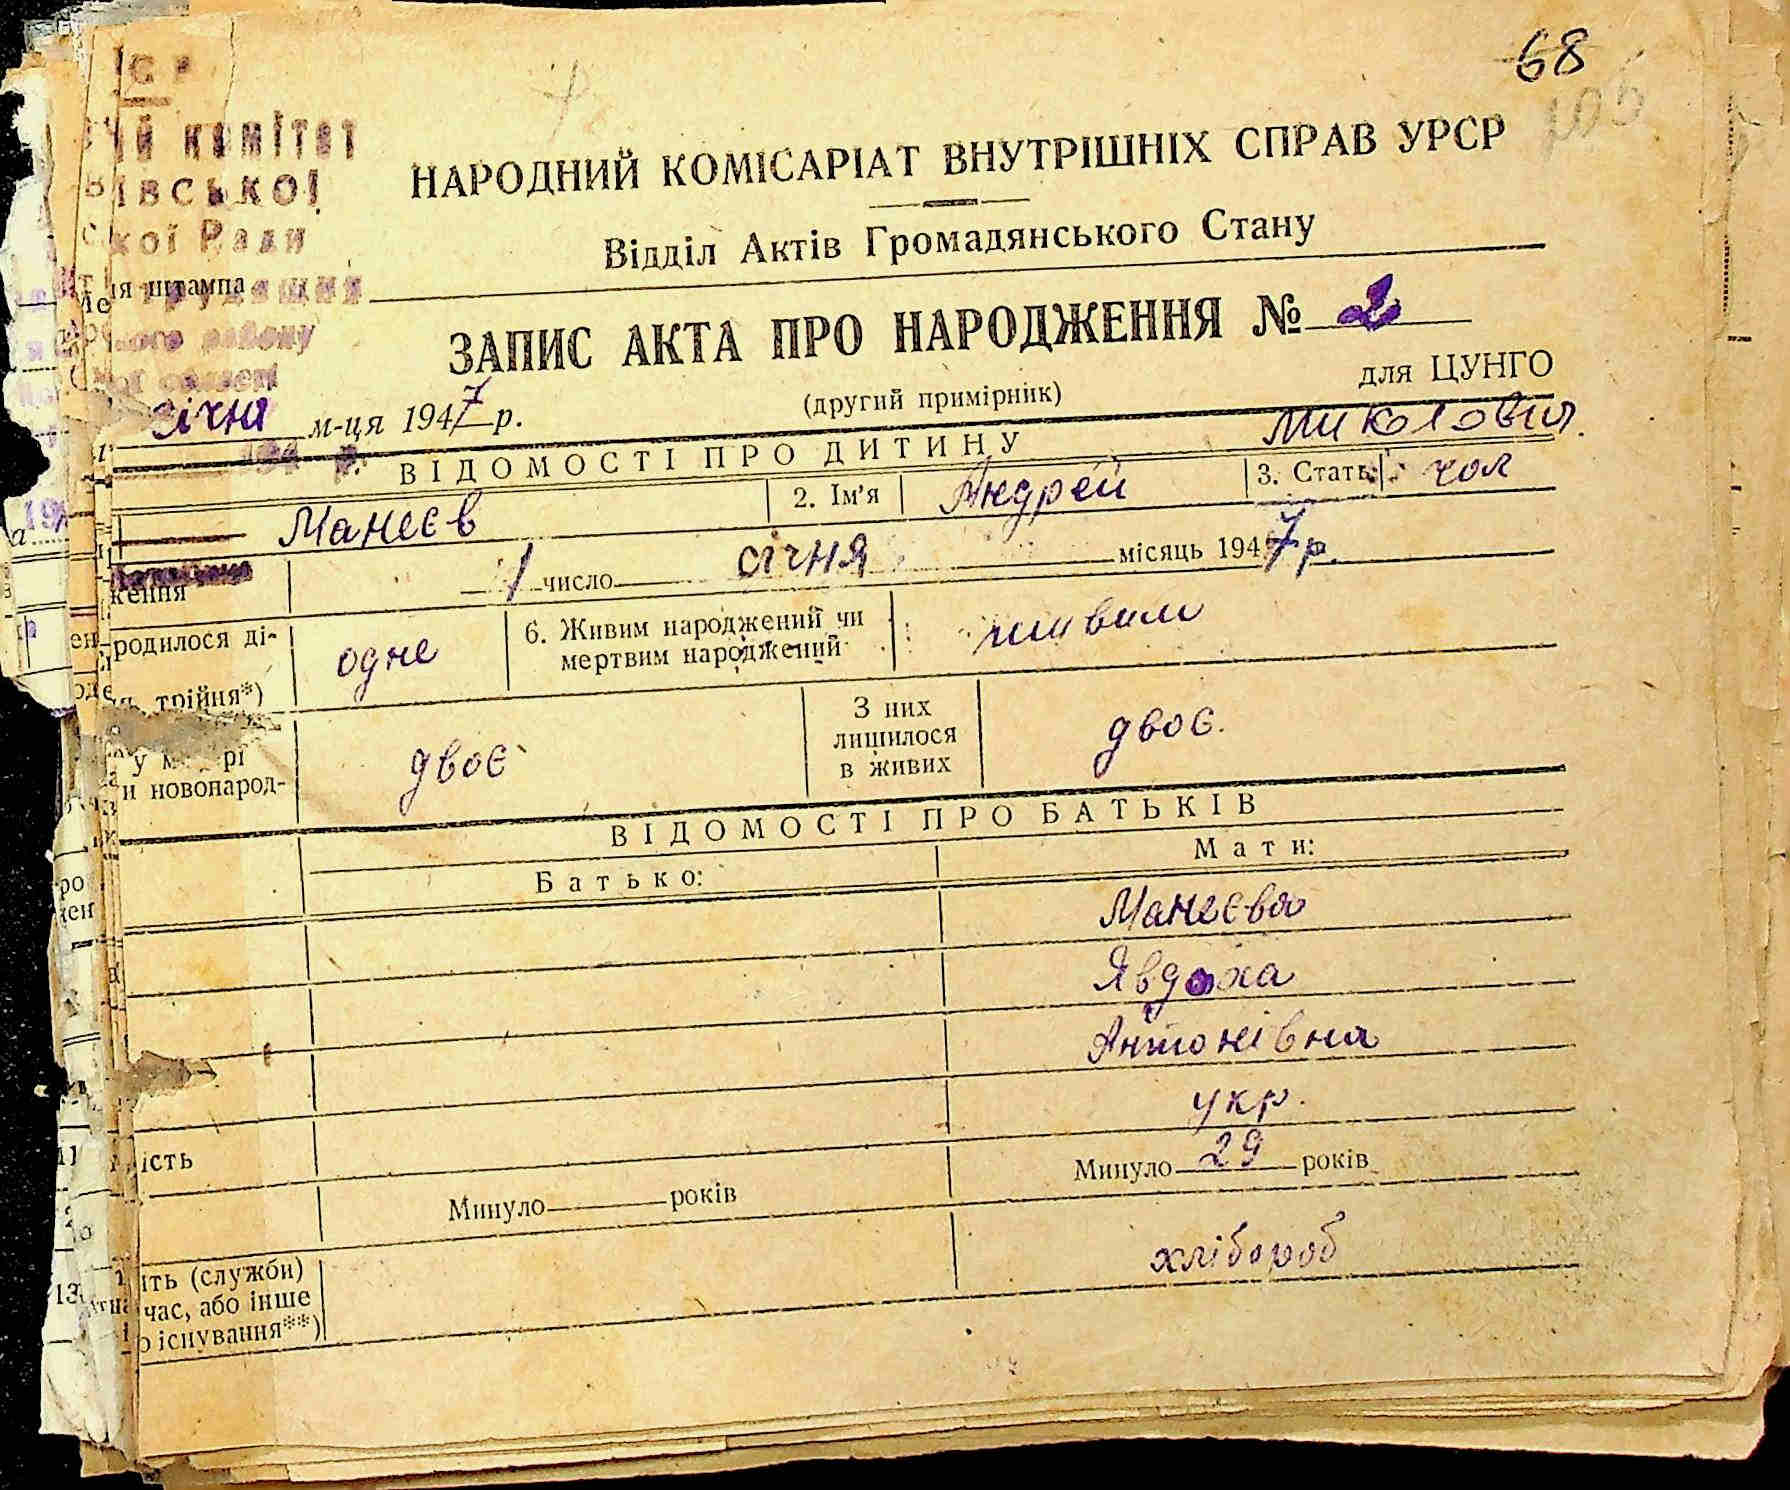 68
комітет
івської
кої Ради
НАРОДНИЙ КОМІСАРІАТ ВНУТРІШНІХ СПРАВ УРСР
Відділ Актів Громадянського Стану
ля штампа
району
ЗАПИС АКТА ПРО НАРОДЖЕННЯ № 2
(другий примірник)
для ЦУНГО
січня м-ця 1947 р.
ВІДОМОСТІ ПРО ДИТИНУ
Миколович
Манеєв 2. Ім'я Андрей 3. Стать чол
ження 1 число січня місяць 1947 р.
родилося ді-
трійня*)
одне 6. Живим народжений чи
мертвим народжений
живим
у рі
и новопарод-
двоє
З них
лишилося
в живих
двоє.
ВІДОМОСТІ ПРО БАТЬКІВ
Батько: Мати:
Манеєва
Явдоха
Антонівна
укр.
ість
Минуло рокiв Минуло 29 років
ить (служби)
час, або інше
о існування**)
хлібороб